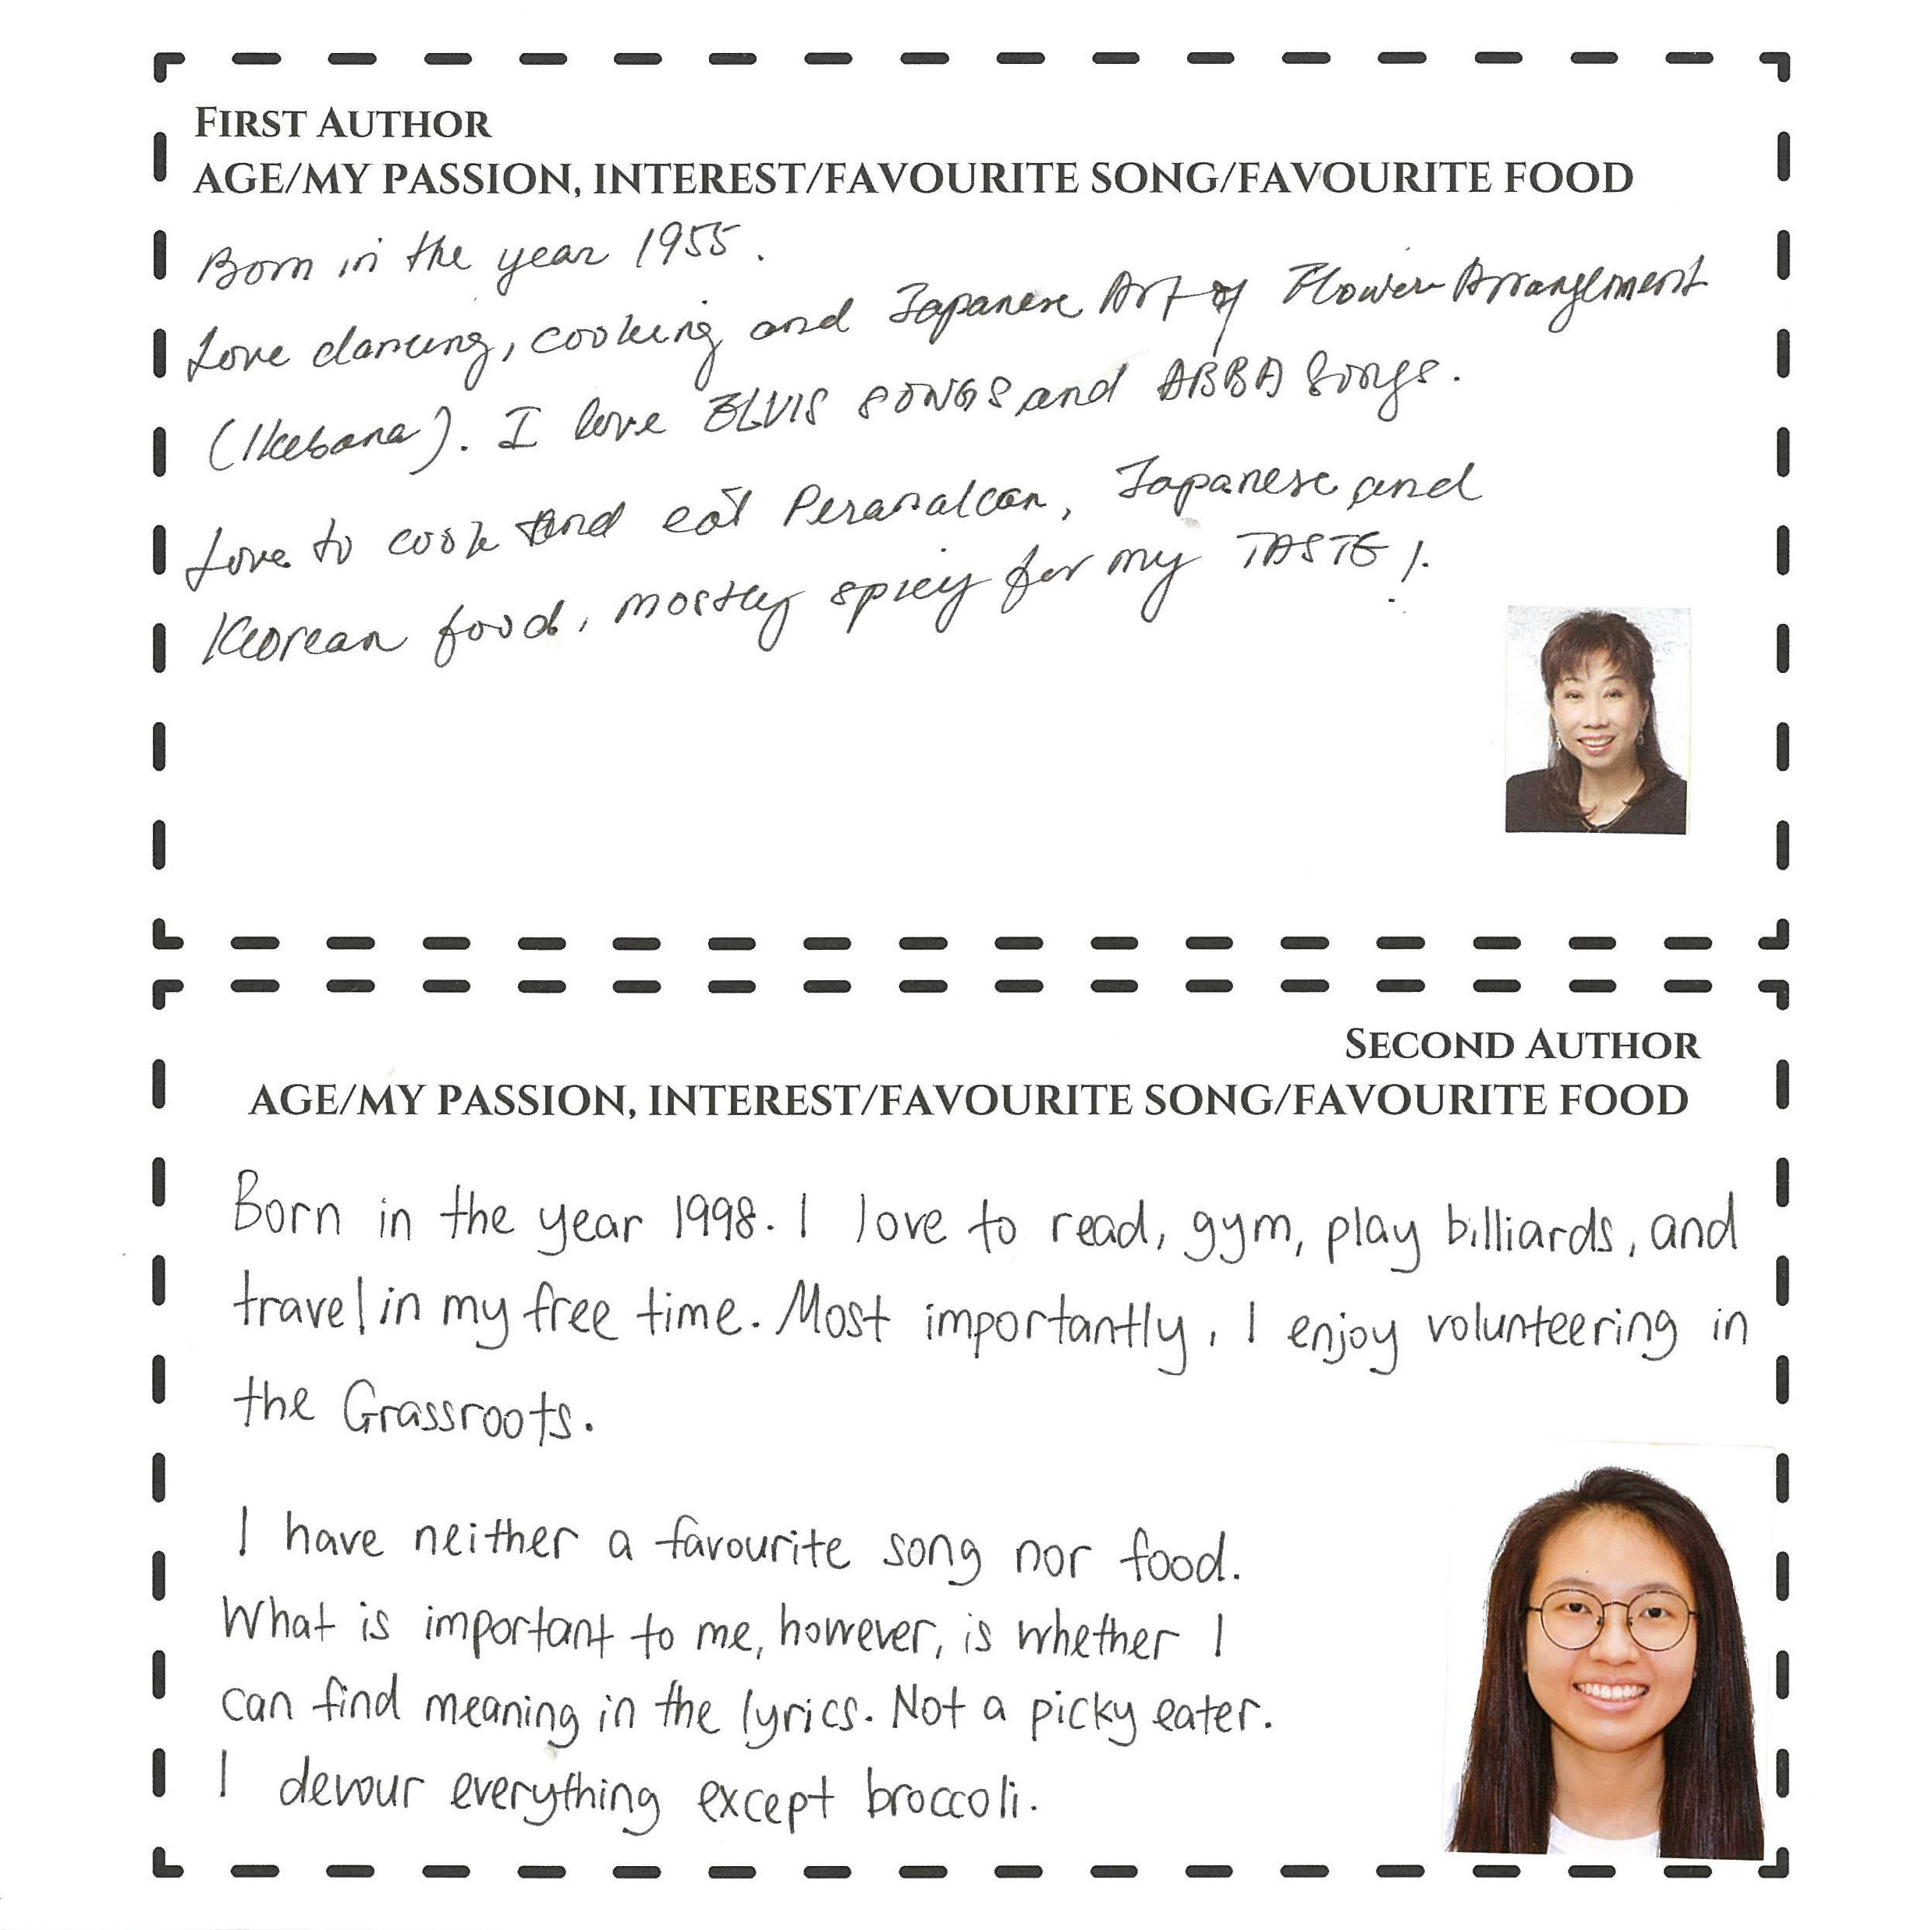 FIRST AUTHOR
AGE/MY PASSION, INTEREST/FAVOURITE SONG/FAVOURITE FOOD
Born in the year 1955.
Love dancing, cooking and Japanese Art of Flower Arrangement
(Ikebana). I love ELVIS SONGS and ABBA Songs.
Love to cook and eat Peranakan, Japanese and
Korean food, mostly spicy for my TASTE!
SECOND AUTHOR
AGE/MY PASSION, INTEREST/FAVOURITE SONG/FAVOURITE FOOD
Born in the year 1998. I love to read, gym, play billiards, and
travel in my free time. Most importantly, I enjoy volunteering in
the Grassroots.
I have neither a favourite song nor food.
What is important to me, however, is whether I
can find meaning in the lyrics. Not a picky eater.
I devour everything except broccoli.